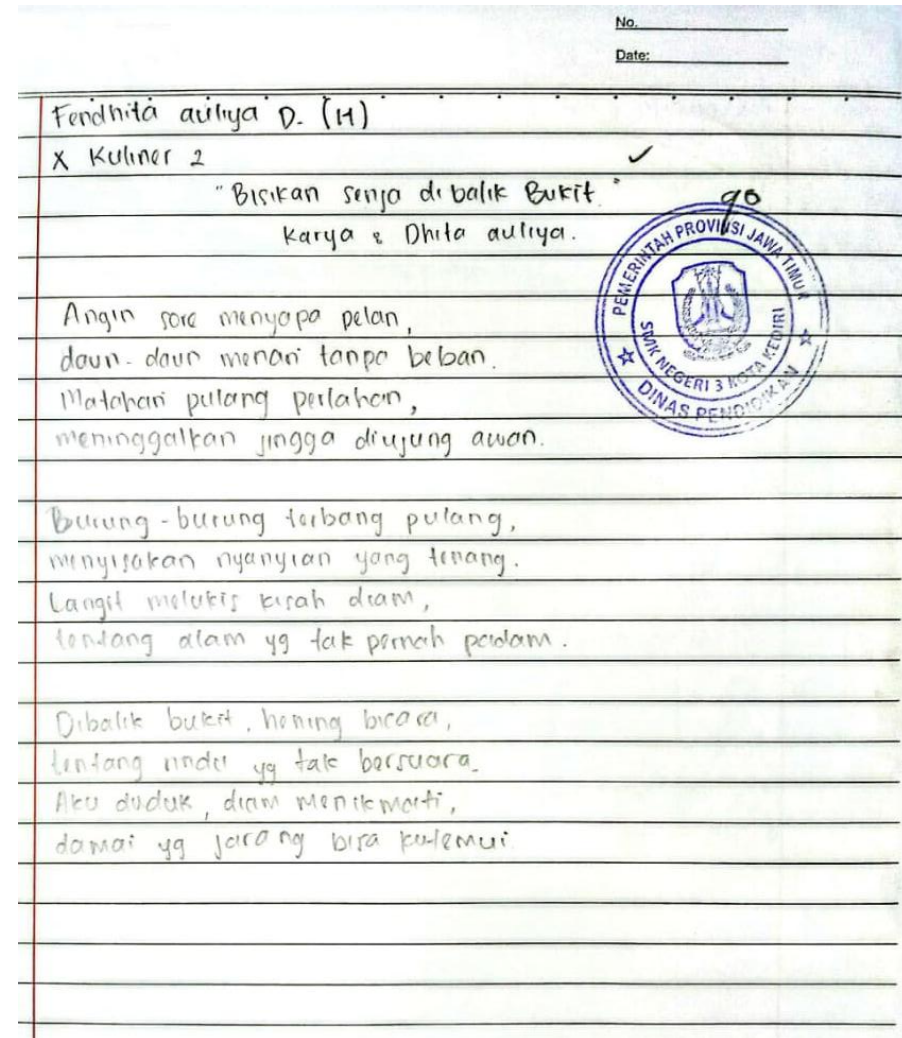 No.
Date:
Fendhita auliya D. (14)
X Kuliner 2
✓
"Bisikan senja di balik Bukit."
90
Karya : Dhita auliya.
PEMERINTAH PROVINSI JAWA TIMUR
SMK NEGERI 3 KOTA KEDIRI
DINAS PENDIDIKAN
Angin sore menyapa pelan,
daun-daun menari tanpa beban.
Matahari pulang perlahan,
meninggalkan jingga diujung awan.
Burung-burung terbang pulang,
menyisakan nyanyian yang tenang.
Langit melukis kisah diam,
tentang alam yg tak pernah padam.
Dibalik bukit, hening bicara,
tentang rindu yg tak bersuara.
Aku duduk, diam menikmati,
damai yg jarang bisa kutemui